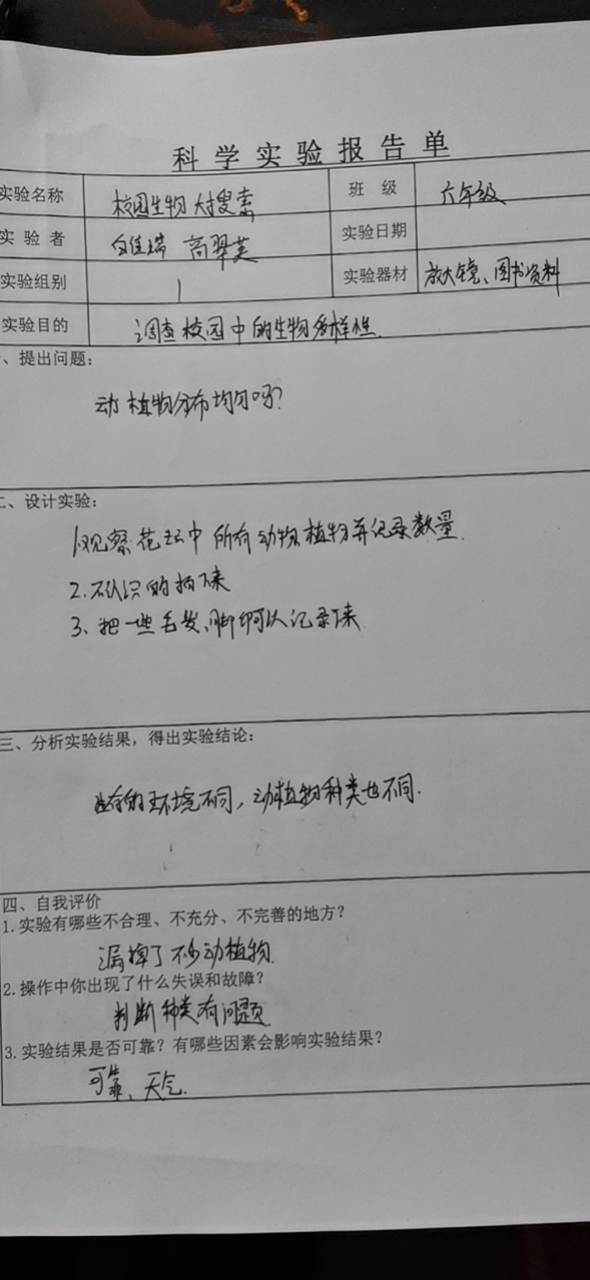 科学实验报告单
实验名称 校园生物大搜索 班 级 六年级
实 验 者 白佳瑞 商翠芙 实验日期
实验组别 1 实验器材 放大镜、图书资料
实验目的 调查校园中的生物多样性
、提出问题:
动植物分布均匀吗?
二、设计实验:
1.观察花坛中所有动物植物并记录数量.
2.不认识的拍下来
3、把一些毛发、脚印可以记录下来
三、分析实验结果,得出实验结论:
的环境不同,动植物种类也不同.
四、自我评价
1.实验有哪些不合理、不充分、不完善的地方?
漏掉了不少动植物.
2.操作中你出现了什么失误和故障?
判断种类有问题
3.实验结果是否可靠?有哪些因素会影响实验结果?
可靠、天气.